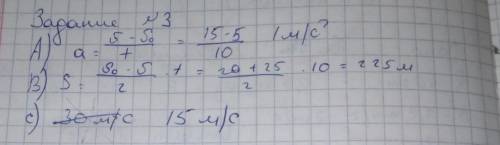 Задание №3
А) a = S - S₀ / t = 15 - 5 / 10 1 м/с²
В) S = S₀ - S / 2 · t = 20 + 25 / 2 · 10 = 225 м
с) ~~30 м/с~~ 15 м/с